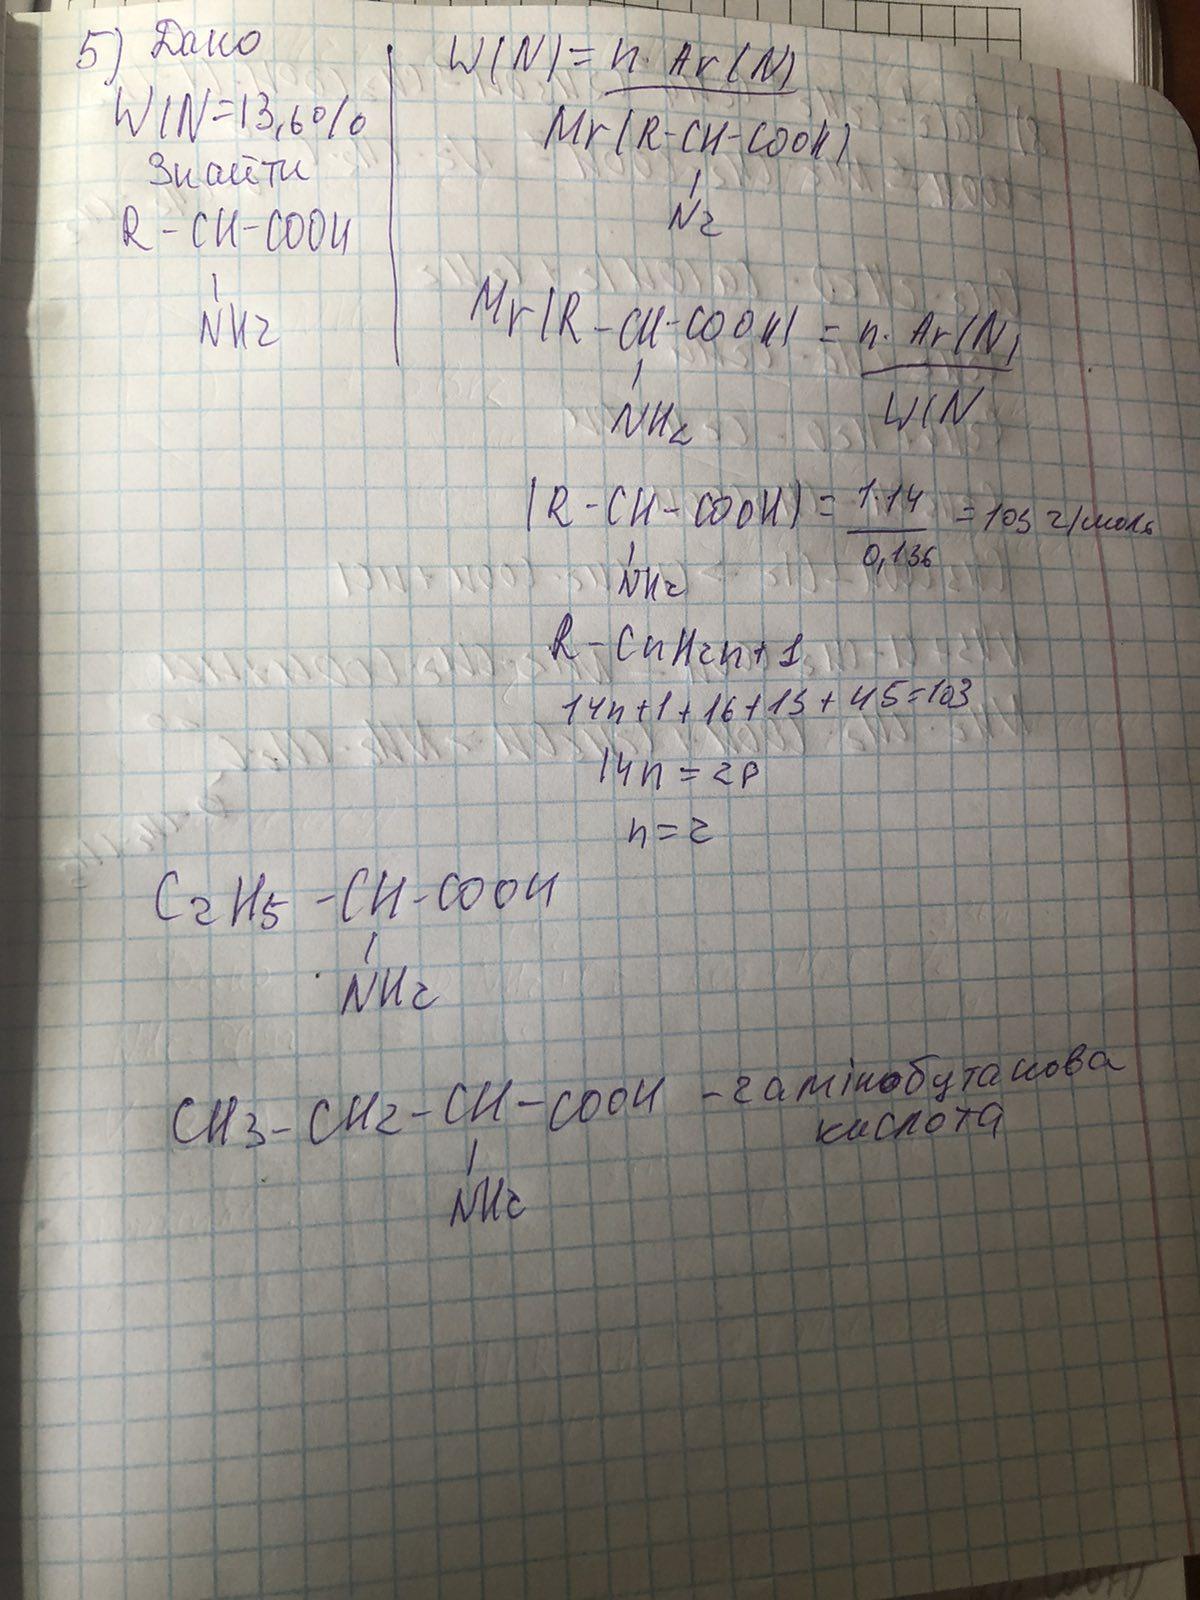 5) Дано
W(N=13,60%
Знайти
R-CH-COOH
NH2
W(N)= n. Ar(N)
Mr(R-CH-COOH)
N2
Mr(R-CH-COOH) = n. Ar(N)
NH2 W(N
(R-CH-COOH) = 1.14 = 103 г/моль
0,136
NH2
R-CnH2n+1
14n+1+16+13+45=103
14n=28
n=2
C2H5-CH-COOH
NH2
CH3-CH2-CH-COOH -2амінобутанова
кислота
NH2